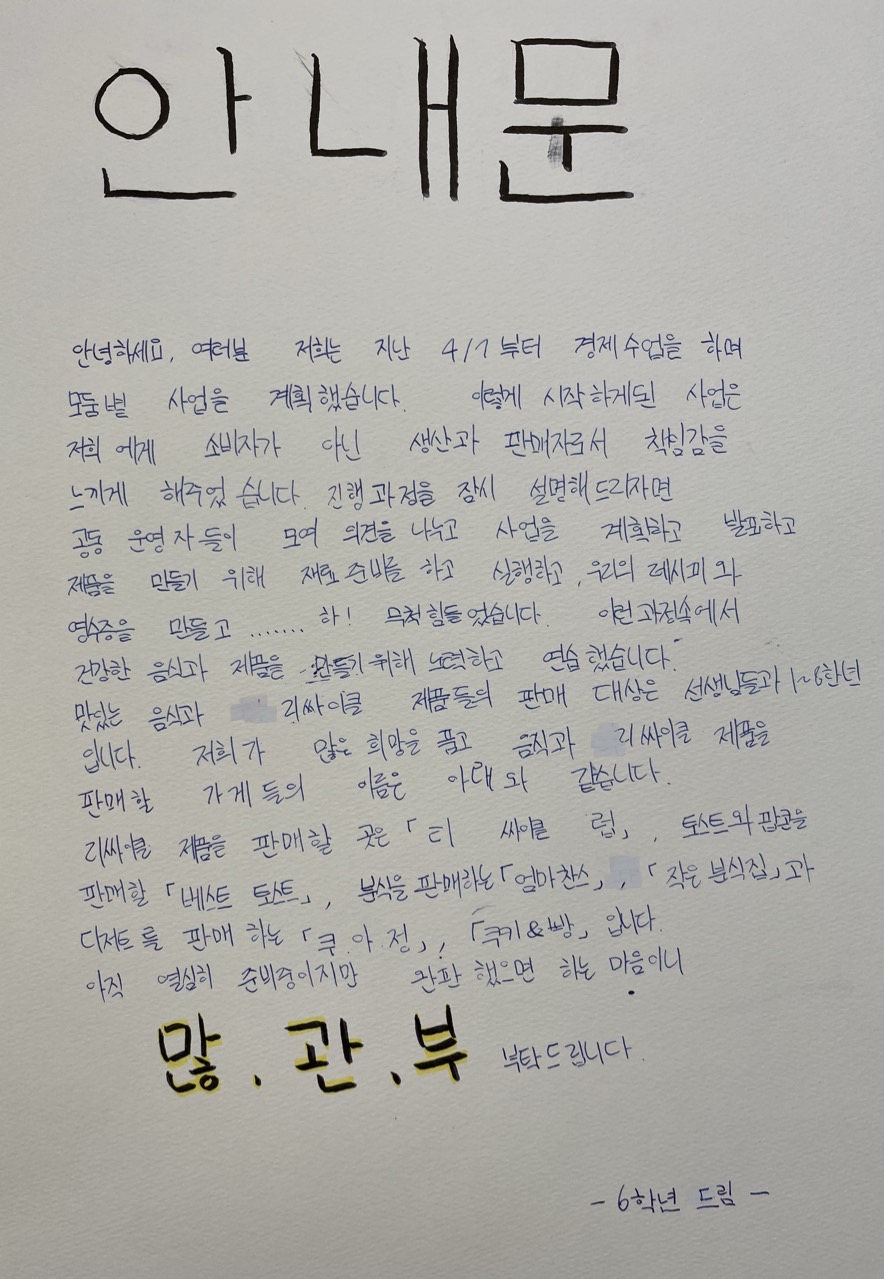 안내문
안녕하세요, 여러분 저희는 지난 4/7부터 경제수업을 하며
모둠별 사업을 계획했습니다. 이렇게 시작하게된 사업은
저희에게 소비자가 아닌 생산과 판매자로서 책임감을
느끼게 해주었습니다. 진행과정을 잠시 설명해드리자면
공동 운영자들이 모여 의견을 나누고 사업을 계획하고 발표하고
제품을 만들기 위해 재료준비를 하고 실행하고, 우리의 레시피와
영수증을 만들고 ....... 하! 무척힘들었습니다. 이런과정속에서
건강한 음식과 제품을 만들기위해 노력하고 연습했습니다.
맛있는 음식과 리싸이클 제품들의 판매 대상은 선생님들과 1~6학년
입니다. 저희가 많은 희망을 품고 음식과 리싸이클 제품을
판매할 가게들의 이름은 아래와 같습니다.
리싸이클 제품을 판매할 곳은 「티 싸이클 럽」, 토스트와 팝콘을
판매할 「베스트 토스트」, 분식을 판매하는 「엄마찬스」, 「작은 분식집」과
디저트를 판매 하는 「쿠.아.정」, 「쿠키&빵」 입니다.
아직 열심히 준비중이지만 완판 했으면 하는 마음이니
많.관.부 부탁드립니다.
- 6학년 드림 -